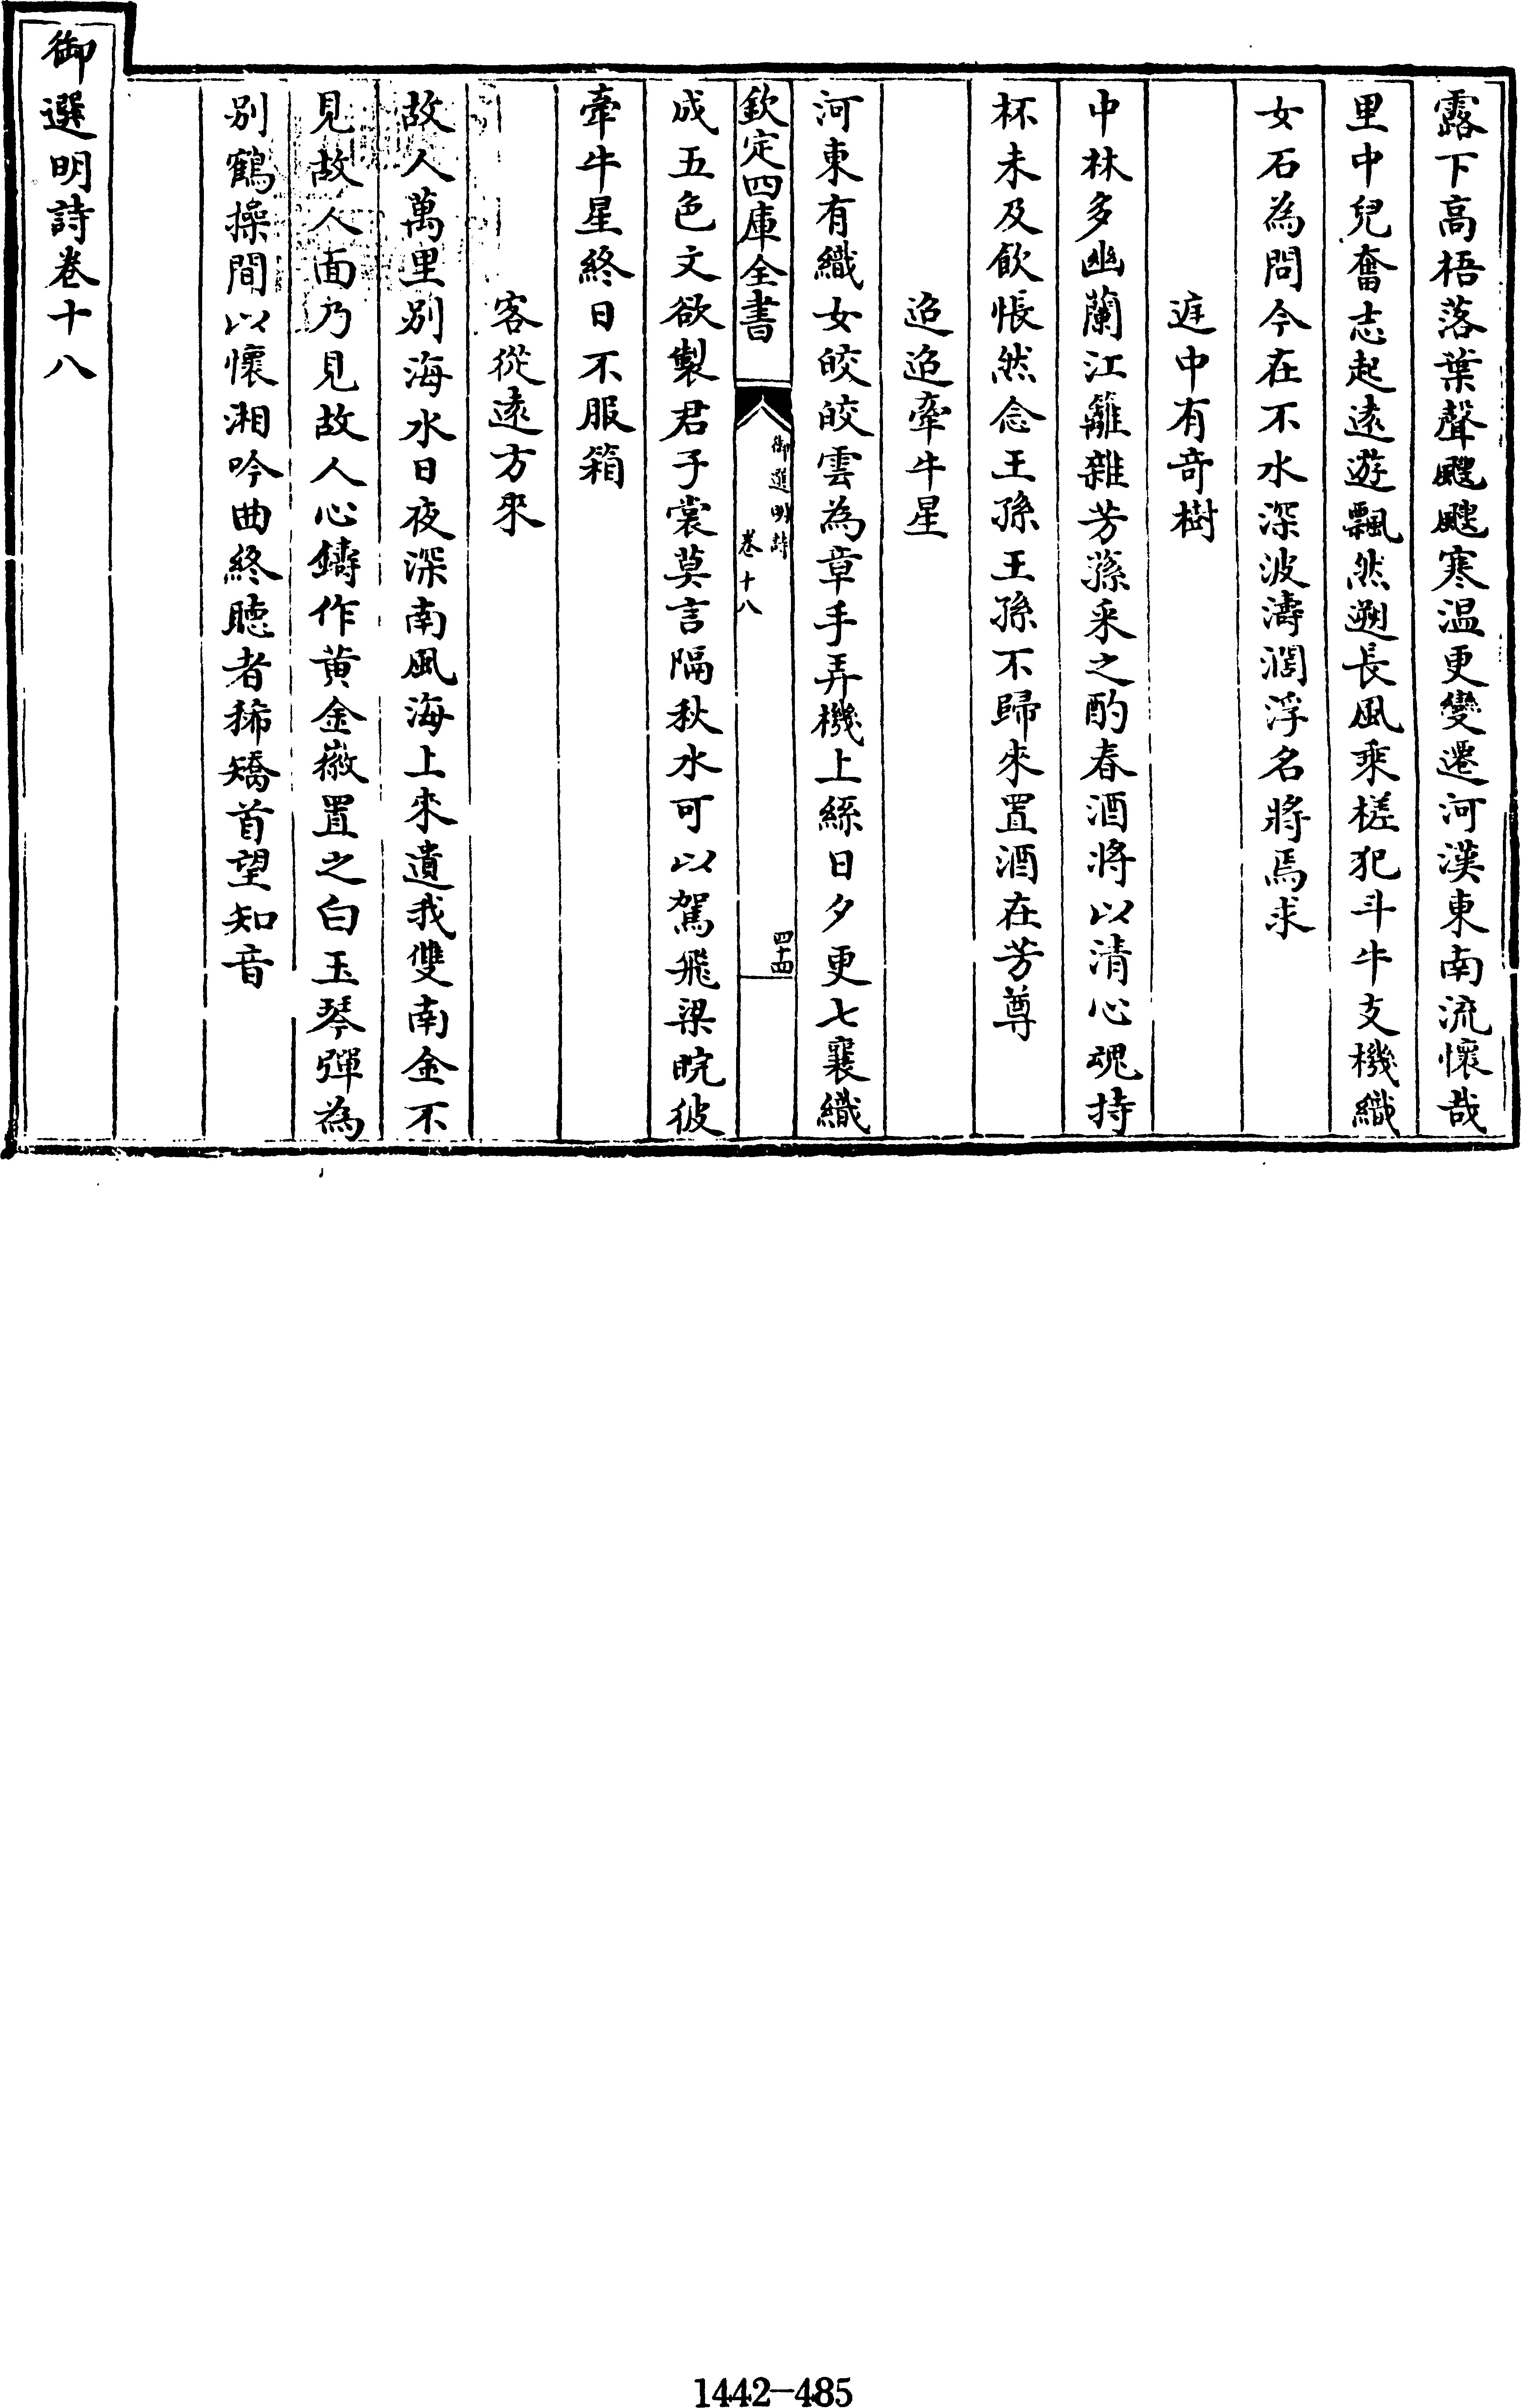 露下高梧落葉聲颸颸寒温更變遷河漢東南流懷哉
里中兒奮志起遠遊飄然遡長風乘槎犯斗牛支機織
女石為問今在不水深波濤濶浮名將焉求
庭中有奇樹
中林多幽蘭江蘺雜芳蓀采之酌春酒將以清心魂持
杯未及飲悵然念王孫王孫不歸來置酒在芳尊
迢迢牽牛星
河東有織女皎皎雲為章手弄機上絲日夕更七襄織
欽定四庫全書
御選明詩
卷十八
四十四
成五色文欲製君子裳莫言隔秋水可以駕飛梁睆彼
牽牛星終日不服箱
客從遠方來
故人萬里别海水日夜深南風海上來遺我雙南金不
見故人面乃見故人心鑄作黄金徽置之白玉琴彈為
别鶴操間以懷湘吟曲終聽者稀矯首望知音
御選明詩卷十八
1442-485